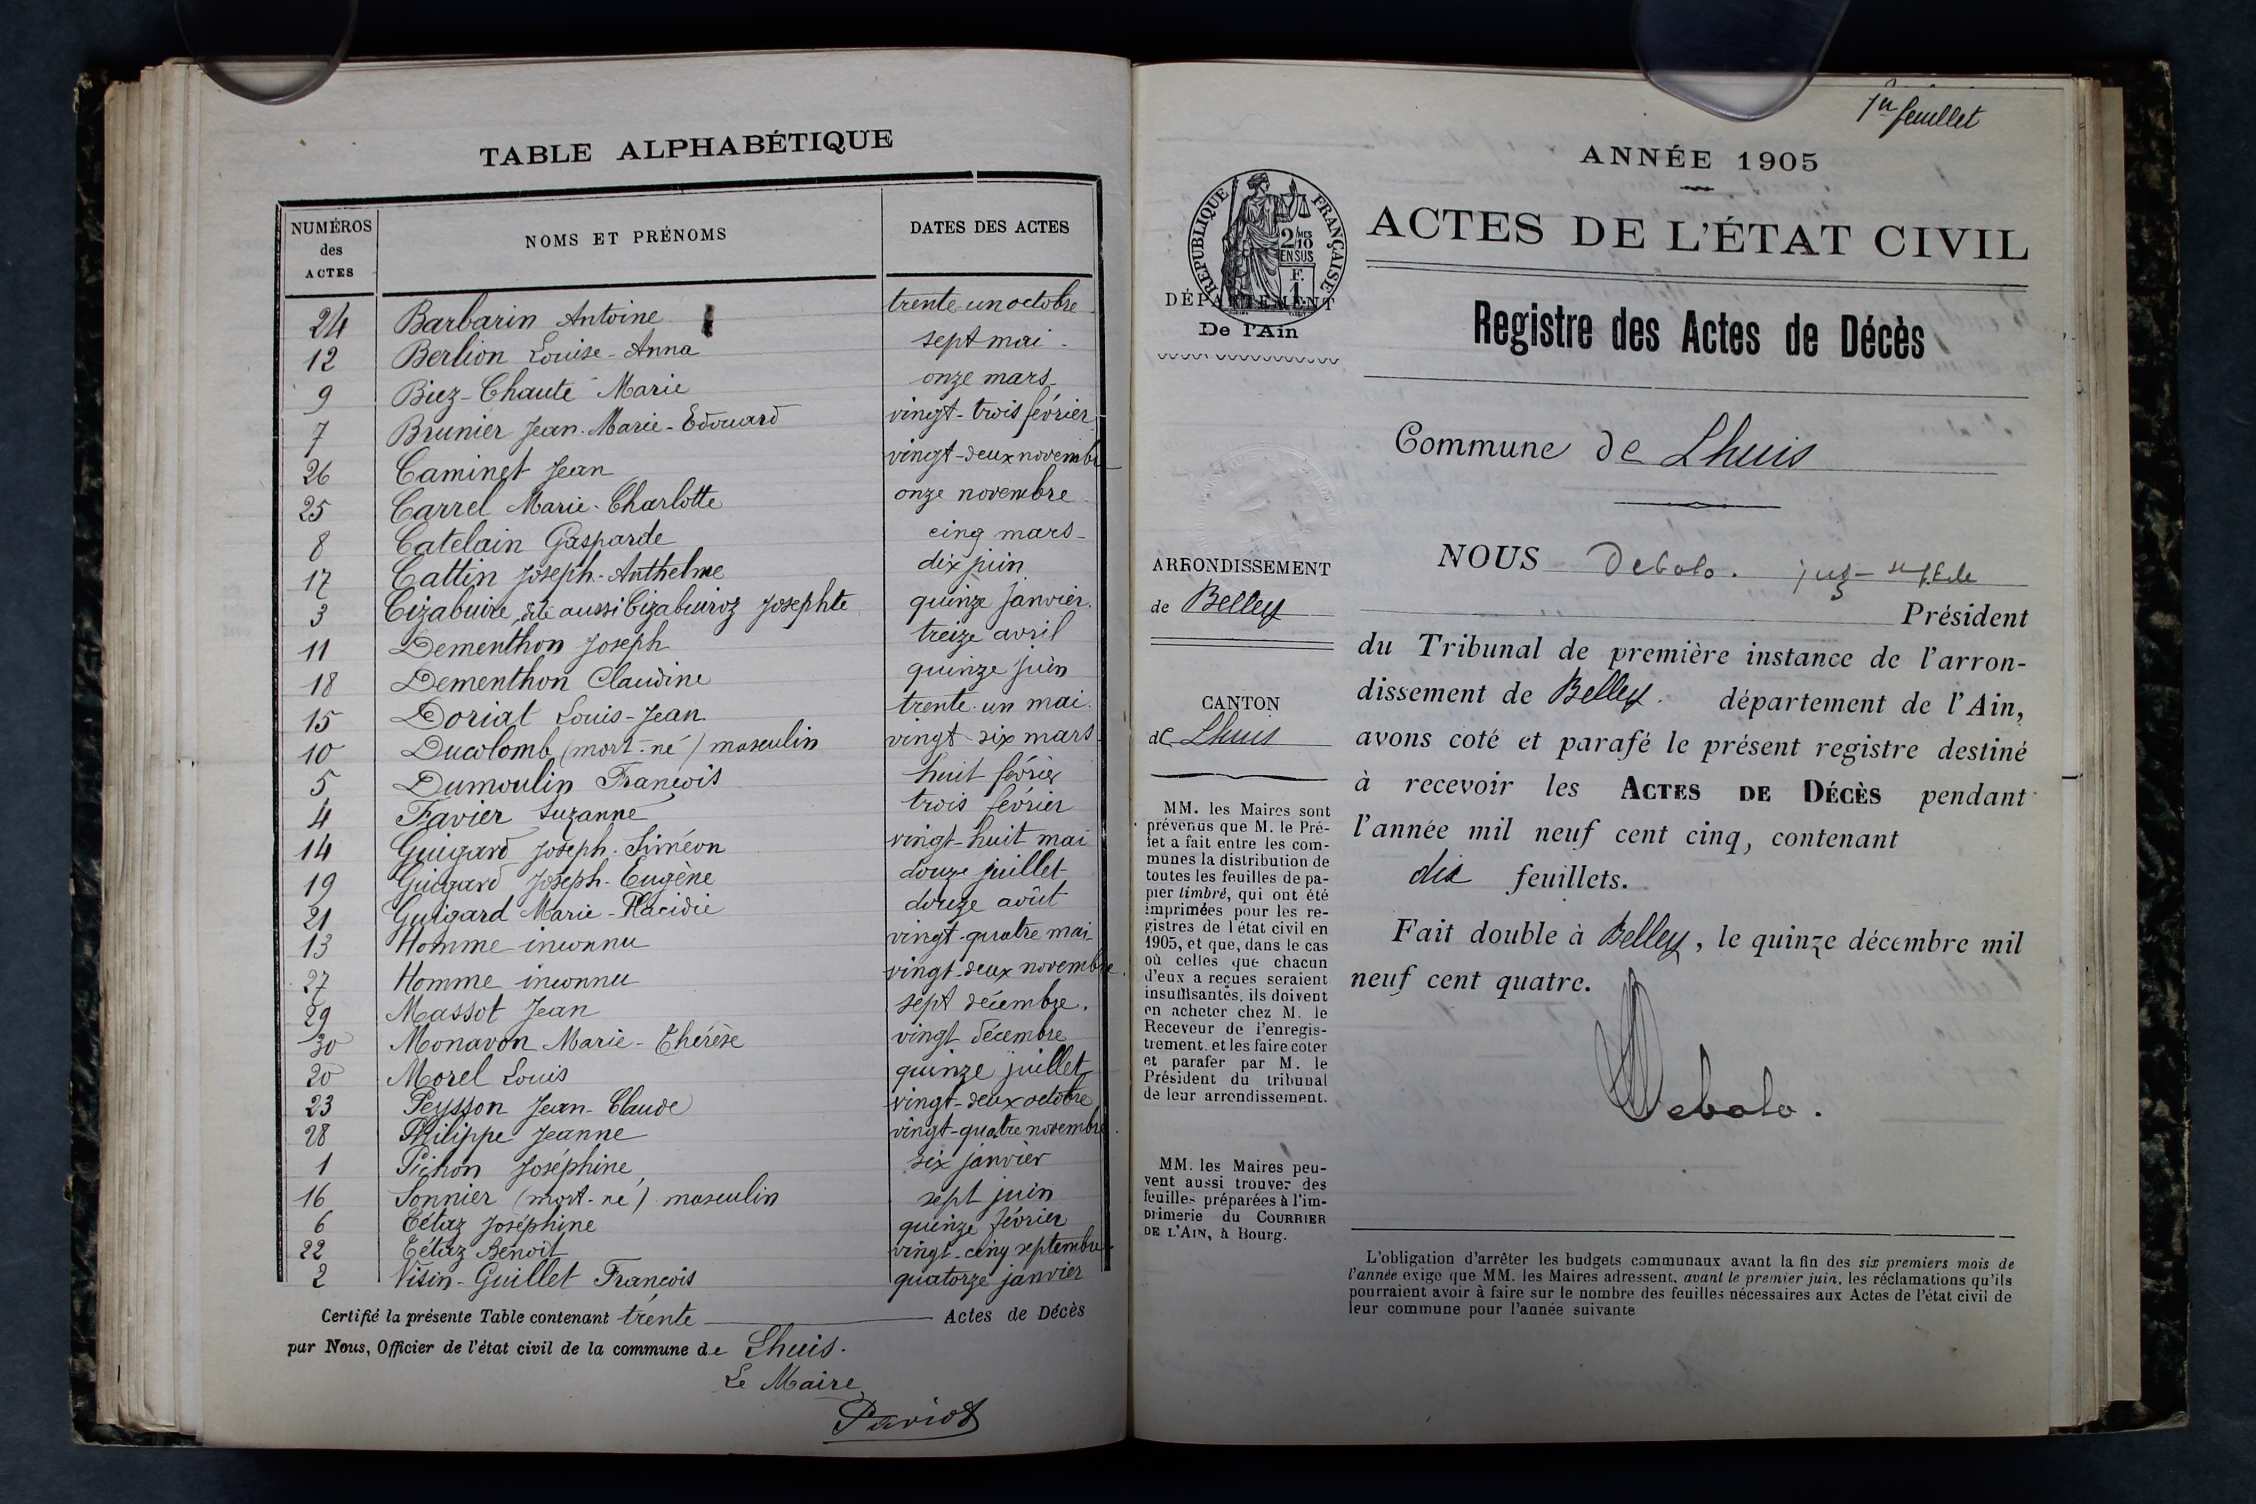 TABLE ALPHABÉTIQUE
NUMÉROS des ACTES NOMS ET PRÉNOMS DATES DES ACTES
24 Barbarin Antoine trente-un octobre
12 Berlion Louise-Anna sept mai
9 Biez-Chaute Marie onze mars
7 Brunier Jean-Marie-Edouard vingt-trois février
26 Caminet Jean vingt-deux novembre
25 Carrel Marie-Charlotte onze novembre
8 Catelain Gasparde cinq mars
17 Cattin Joseph-Anthelme dix juin
3 Cizabuire, dite aussi Cizabuiroz Josephte quinze janvier.
11 Dementhon Joseph treize avril
18 Dementhon Claudine quinze juin
15 Doriat Louis-Jean trente-un mai.
10 Ducolomb (mort-né) masculin vingt-six mars
5 Dumoulin François huit février
4 Favier Suzanne trois février
14 Guigard Joseph-Siméon vingt-huit mai
19 Guigard Joseph-Eugène douze juillet
21 Guigard Marie-Placidie douze août
13 Homme inconnu vingt-quatre mai
27 Homme inconnu vingt-deux novembre.
29 Massot Jean sept décembre.
30 Monavon Marie-Thérèse vingt décembre
20 Morel Louis quinze juillet
23 Peysson Jean-Claude vingt-deux octobre
28 Philippe Jeanne vingt-quatre novembre.
1 Pichon Joséphine six janvier
16 Sonnier (mort-né) masculin sept juin
6 Tétaz Joséphine quinze février
22 Tétaz Benoit vingt-cinq septembre
2 Visin-Guillet François quatorze janvier
Certifié la présente Table contenant trente Actes de Décès
par Nous, Officier de l'état civil de la commune de Lhuis.
Le Maire
Paviot
1er feuillet
ANNÉE 1905
RÉPUBLIQUE FRANÇAISE
2/10 MES
EN SUS
F.
1.
ACTES DE L'ÉTAT CIVIL
DÉPARTEMENT
De l'Ain
Registre des Actes de Décès
Commune de Lhuis
ARRONDISSEMENT
de Belley
CANTON
de Lhuis
MM. les Maires sont
prévenus que M. le Pré-
fet a fait entre les com-
munes la distribution de
toutes les feuilles de pa-
pier timbré, qui ont été
imprimées pour les re-
gistres de l'état civil en
1905, et que, dans le cas
où celles que chacun
d'eux a reçues seraient
insuffisantes, ils doivent
en acheter chez M. le
Receveur de l'enregis-
trement. et les faire coter
et parafer par M. le
Président du tribunal
de leur arrondissement.
MM. les Maires peu-
vent aussi trouver des
feuilles préparées à l'im-
primerie du COURRIER
DE L'AIN, à Bourg.
NOUS Debolo.
Président
du Tribunal de première instance de l'arron-
dissement de Belley. département de l'Ain,
avons coté et parafé le présent registre destiné
à recevoir les ACTES DE DÉCÈS pendant
l'année mil neuf cent cinq, contenant
dix feuillets.
Fait double à Belley, le quinze décembre mil
neuf cent quatre.
Debolo.
L'obligation d'arrêter les budgets communaux avant la fin des six premiers mois de
l'année exige que MM. les Maires adressent, avant le premier juin, les réclamations qu'ils
pourraient avoir à faire sur le nombre des feuilles nécessaires aux Actes de l'état civil de
leur commune pour l'année suivante